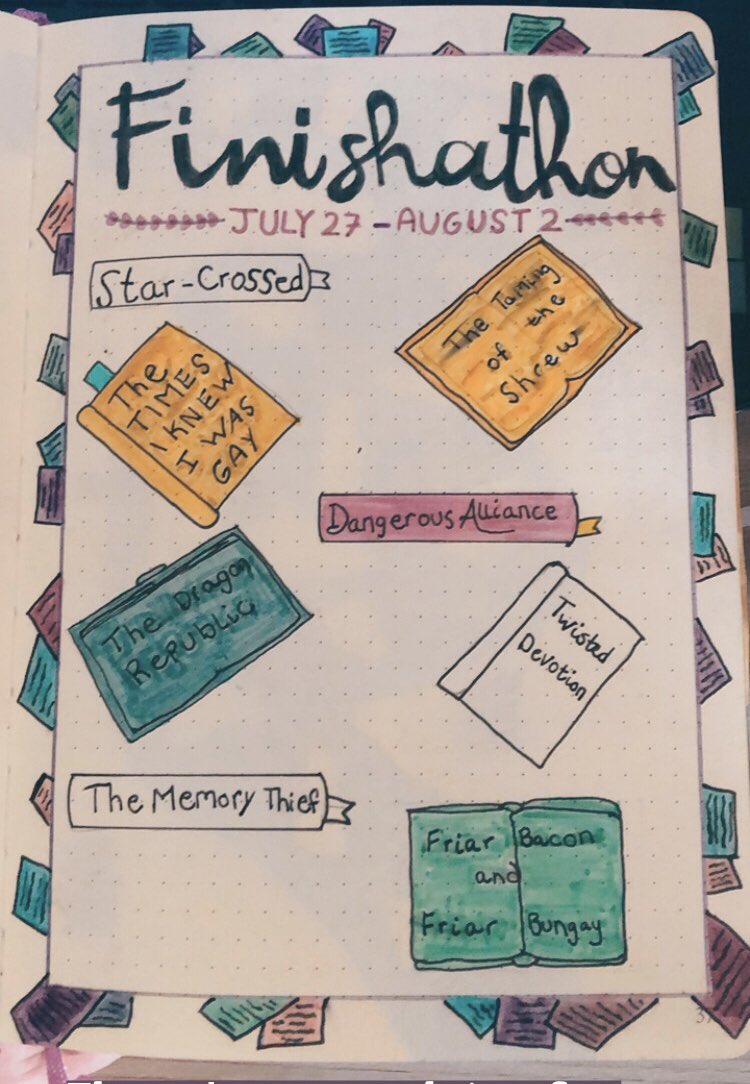 Finishathon
JULY 27 - AUGUST 2
Star-Crossed
The Taming
of the
Shrew
The
TIMES
I KNEW
I WAS
GAY
Dangerous Alliance
The Dragon
Republic
Twisted
Devotion
The Memory Thief
Friar Bacon
and
Friar Bungay